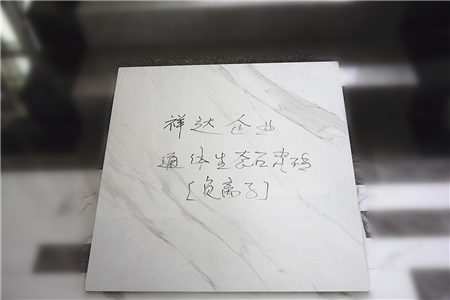 祥达企业
通体生态石瓷砖
[负离子]